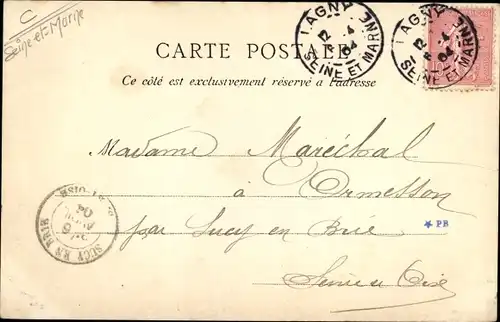 C
Seine et Marne
LAGNY
12
4
04
SEINE ET MARNE
LAGNY
12
4
04
SEINE ET MARNE
CARTE POSTALE
Ce côté est exclusivement réservé à l'adresse
Madame Maréchal
à Ormesson
par Sucy en Brie
Seine et Oise
* PB
SUCY EN BRIE
6
04